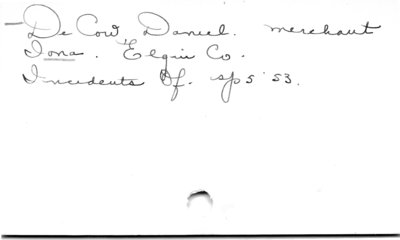 – De Cow, Daniel. merchant
Iona. Elgin Co.
Incidents Of. sp 5 '53.